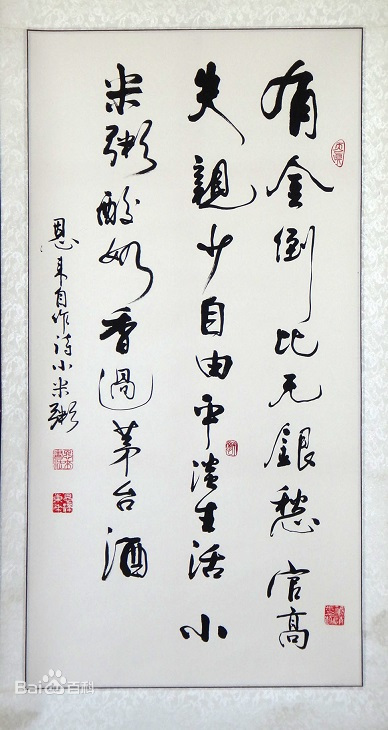 有金倒比无銀愁官高
失親少自由平淡生活小
米粥酸奶香過茅台酒
恩来自作诗小米粥
Bai百科